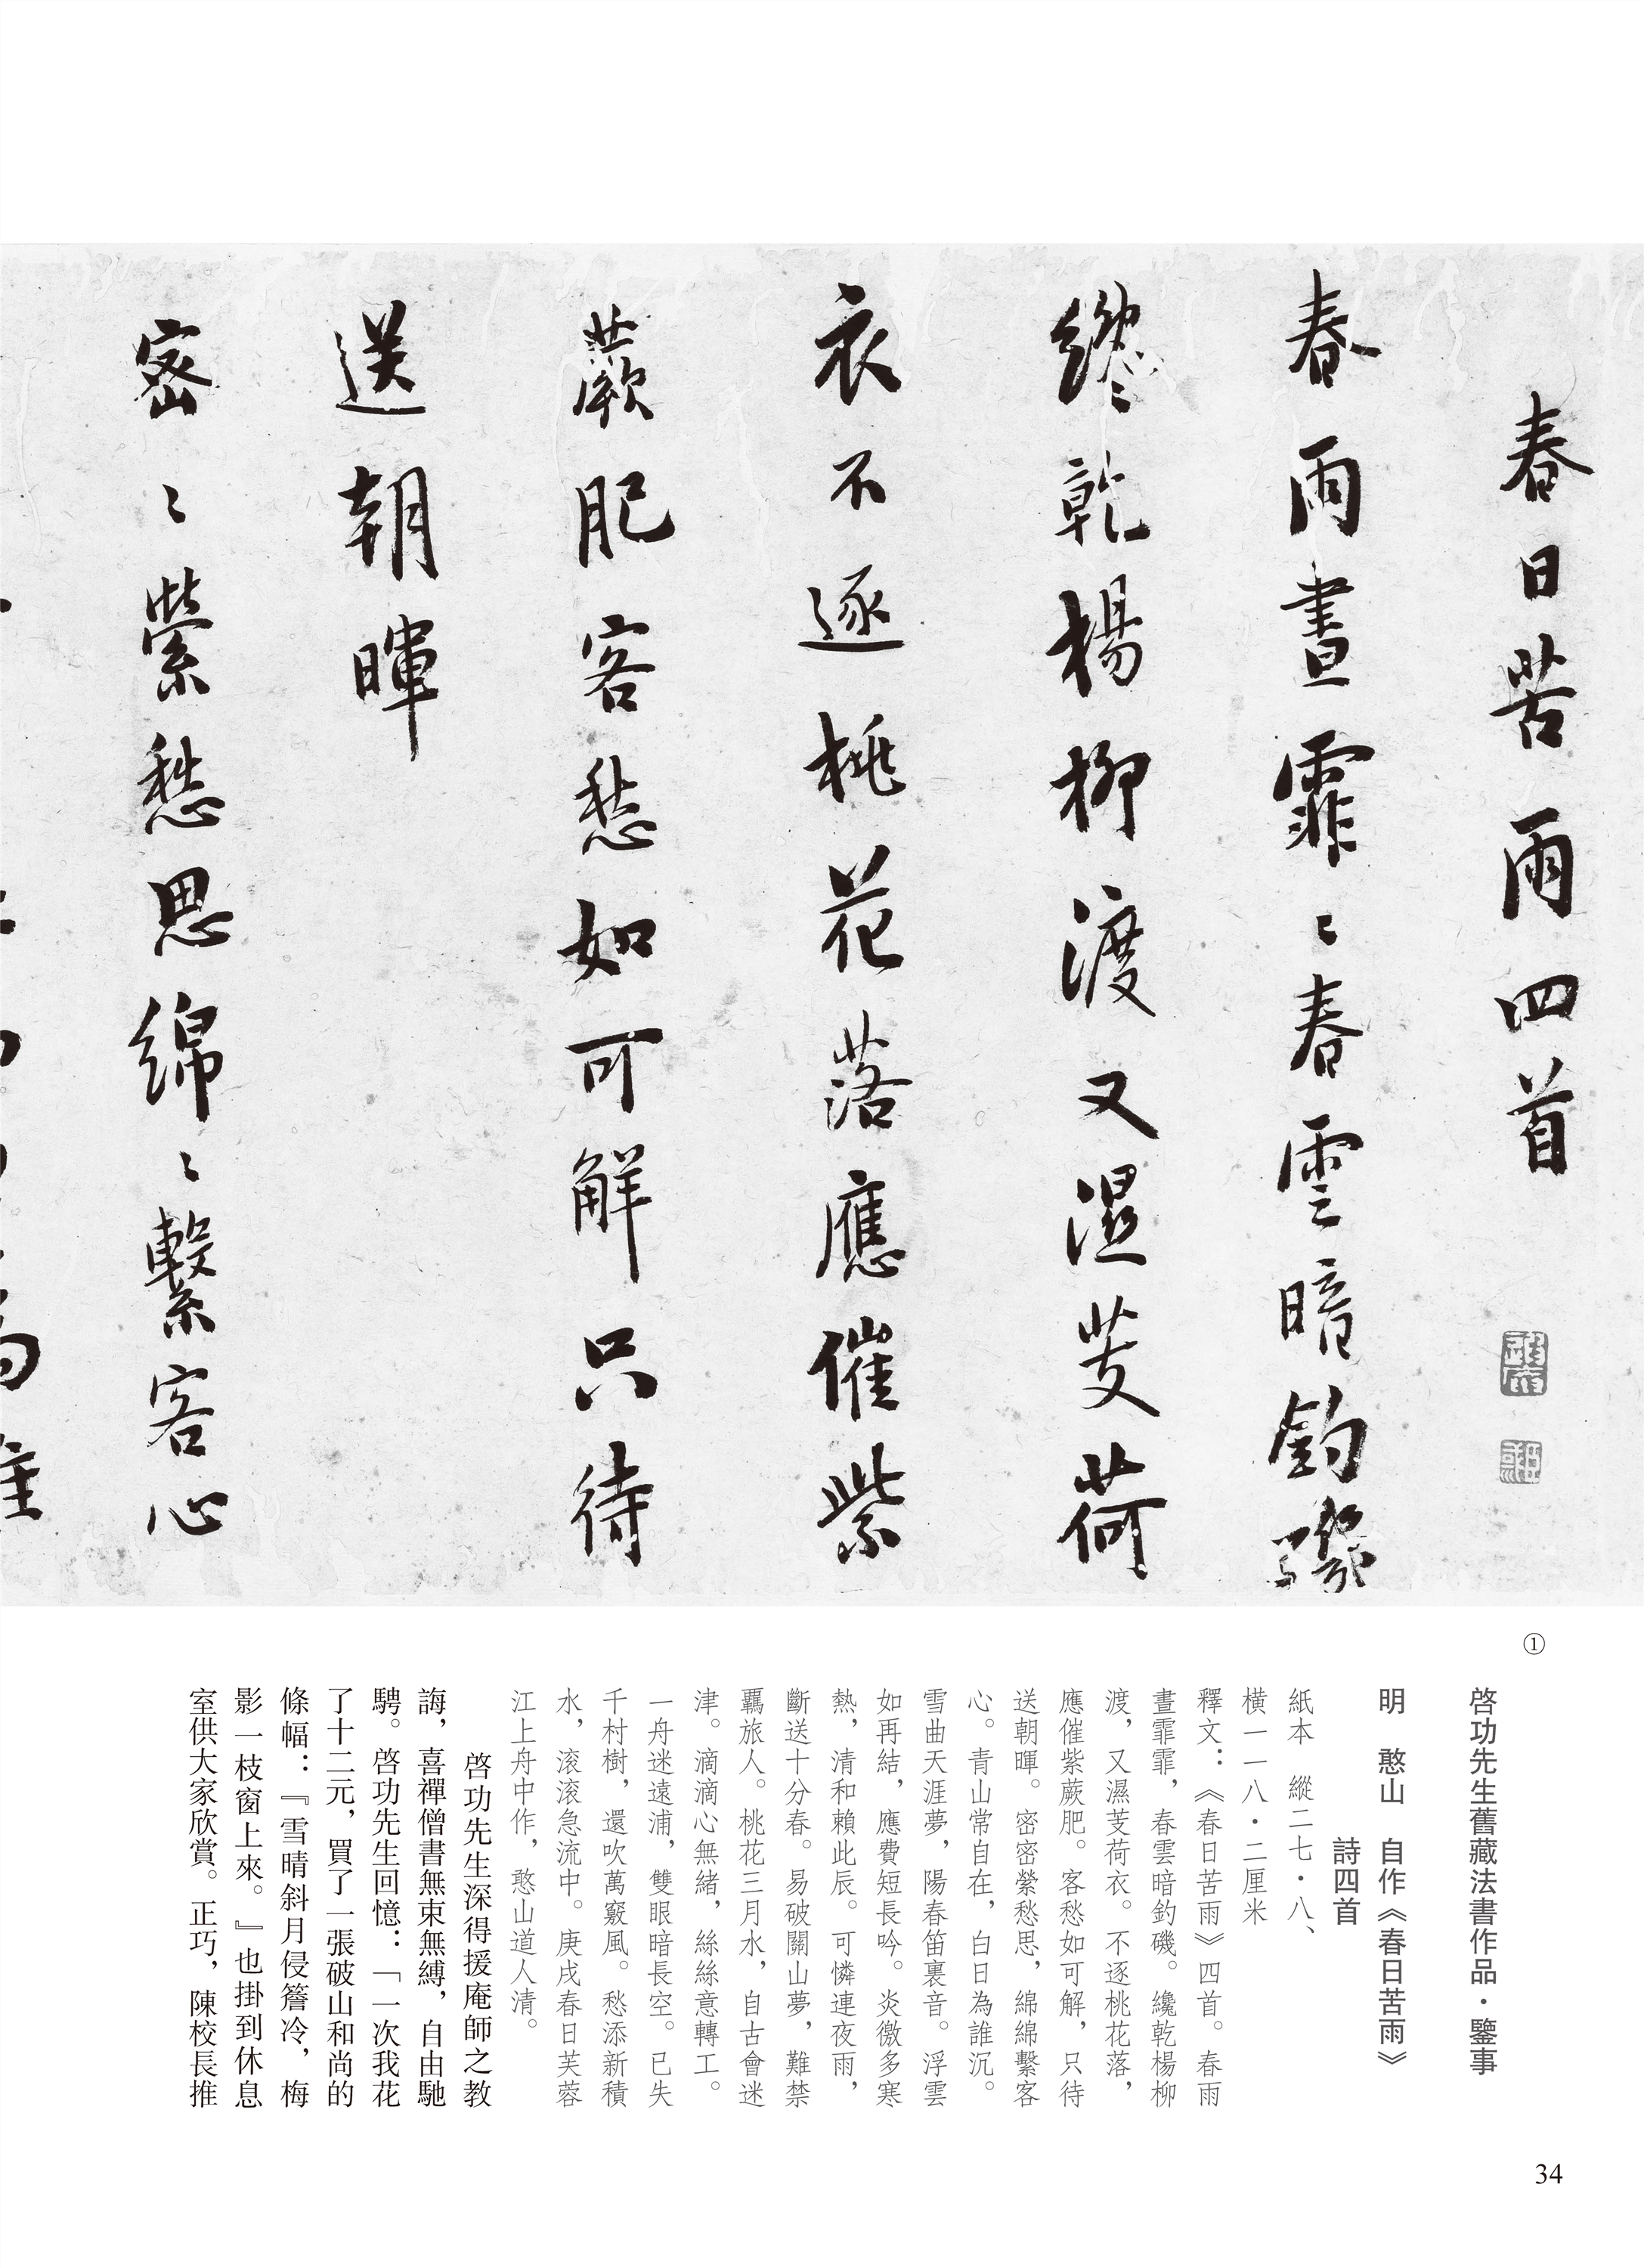 春日苦雨四首
春雨晝霏〻春雲暗釣磯
纔乾楊柳渡又濕芰荷
衣不逐桃花落應催紫
蕨肥客愁如可解只待
送朝暉
密〻縈愁思綿〻繫客心
①
啓功先生舊藏法書作品・鑒事
明　憨山　自作《春日苦雨》
詩四首
紙本　縱二七・八、
橫一一八・二厘米
釋文：《春日苦雨》四首。春雨
晝霏霏，春雲暗釣磯。纔乾楊柳
渡，又濕芰荷衣。不逐桃花落，
應催紫蕨肥。客愁如可解，只待
送朝暉。密密縈愁思，綿綿繫客
心。青山常自在，白日為誰沉。
雪曲天涯夢，陽春笛裏音。浮雲
如再結，應費短長吟。炎徼多寒
熱，清和賴此辰。可憐連夜雨，
斷送十分春。易破關山夢，難禁
羈旅人。桃花三月水，自古會迷
津。滴滴心無緒，絲絲意轉工。
一舟迷遠浦，雙眼暗長空。已失
千村樹，還吹萬竅風。愁添新積
水，滚滚急流中。庚戌春日芙蓉
江上舟中作，憨山道人清。
啓功先生深得援庵師之教
誨，喜禪僧書無束無縛，自由馳
騁。啓功先生回憶：「一次我花
了十二元，買了一張破山和尚的
條幅：『雪晴斜月侵簷冷，梅
影一枝窗上來。』也掛到休息
室供大家欣賞。正巧，陳校長推
34